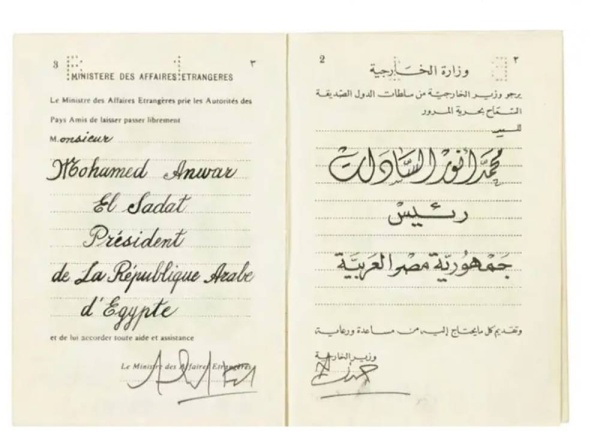 3
٣
MINISTERE DES AFFAIRES ETRANGERES
Le Ministre des Affaires Etrangères prie les Autorités des
Pays Amis de laisser passer librement
Monsieur
Mohamed Anwar
El Sadat
Président
de La République Arabe
d'Egypte
et de lui accorder toute aide et assistance
Le Ministre des Affaires Etrangères
2
٢
وزارة الخارجية
يرجو وزير الخارجية من سلطات الدول الصديقة
السماح بحرية المرور
للسيد
محمد أنور السادات
رئيس
جمهورية مصر العربية
وتقديم كل ما يحتاج إليه من مساعدة ورعاية
وزير الخارجية